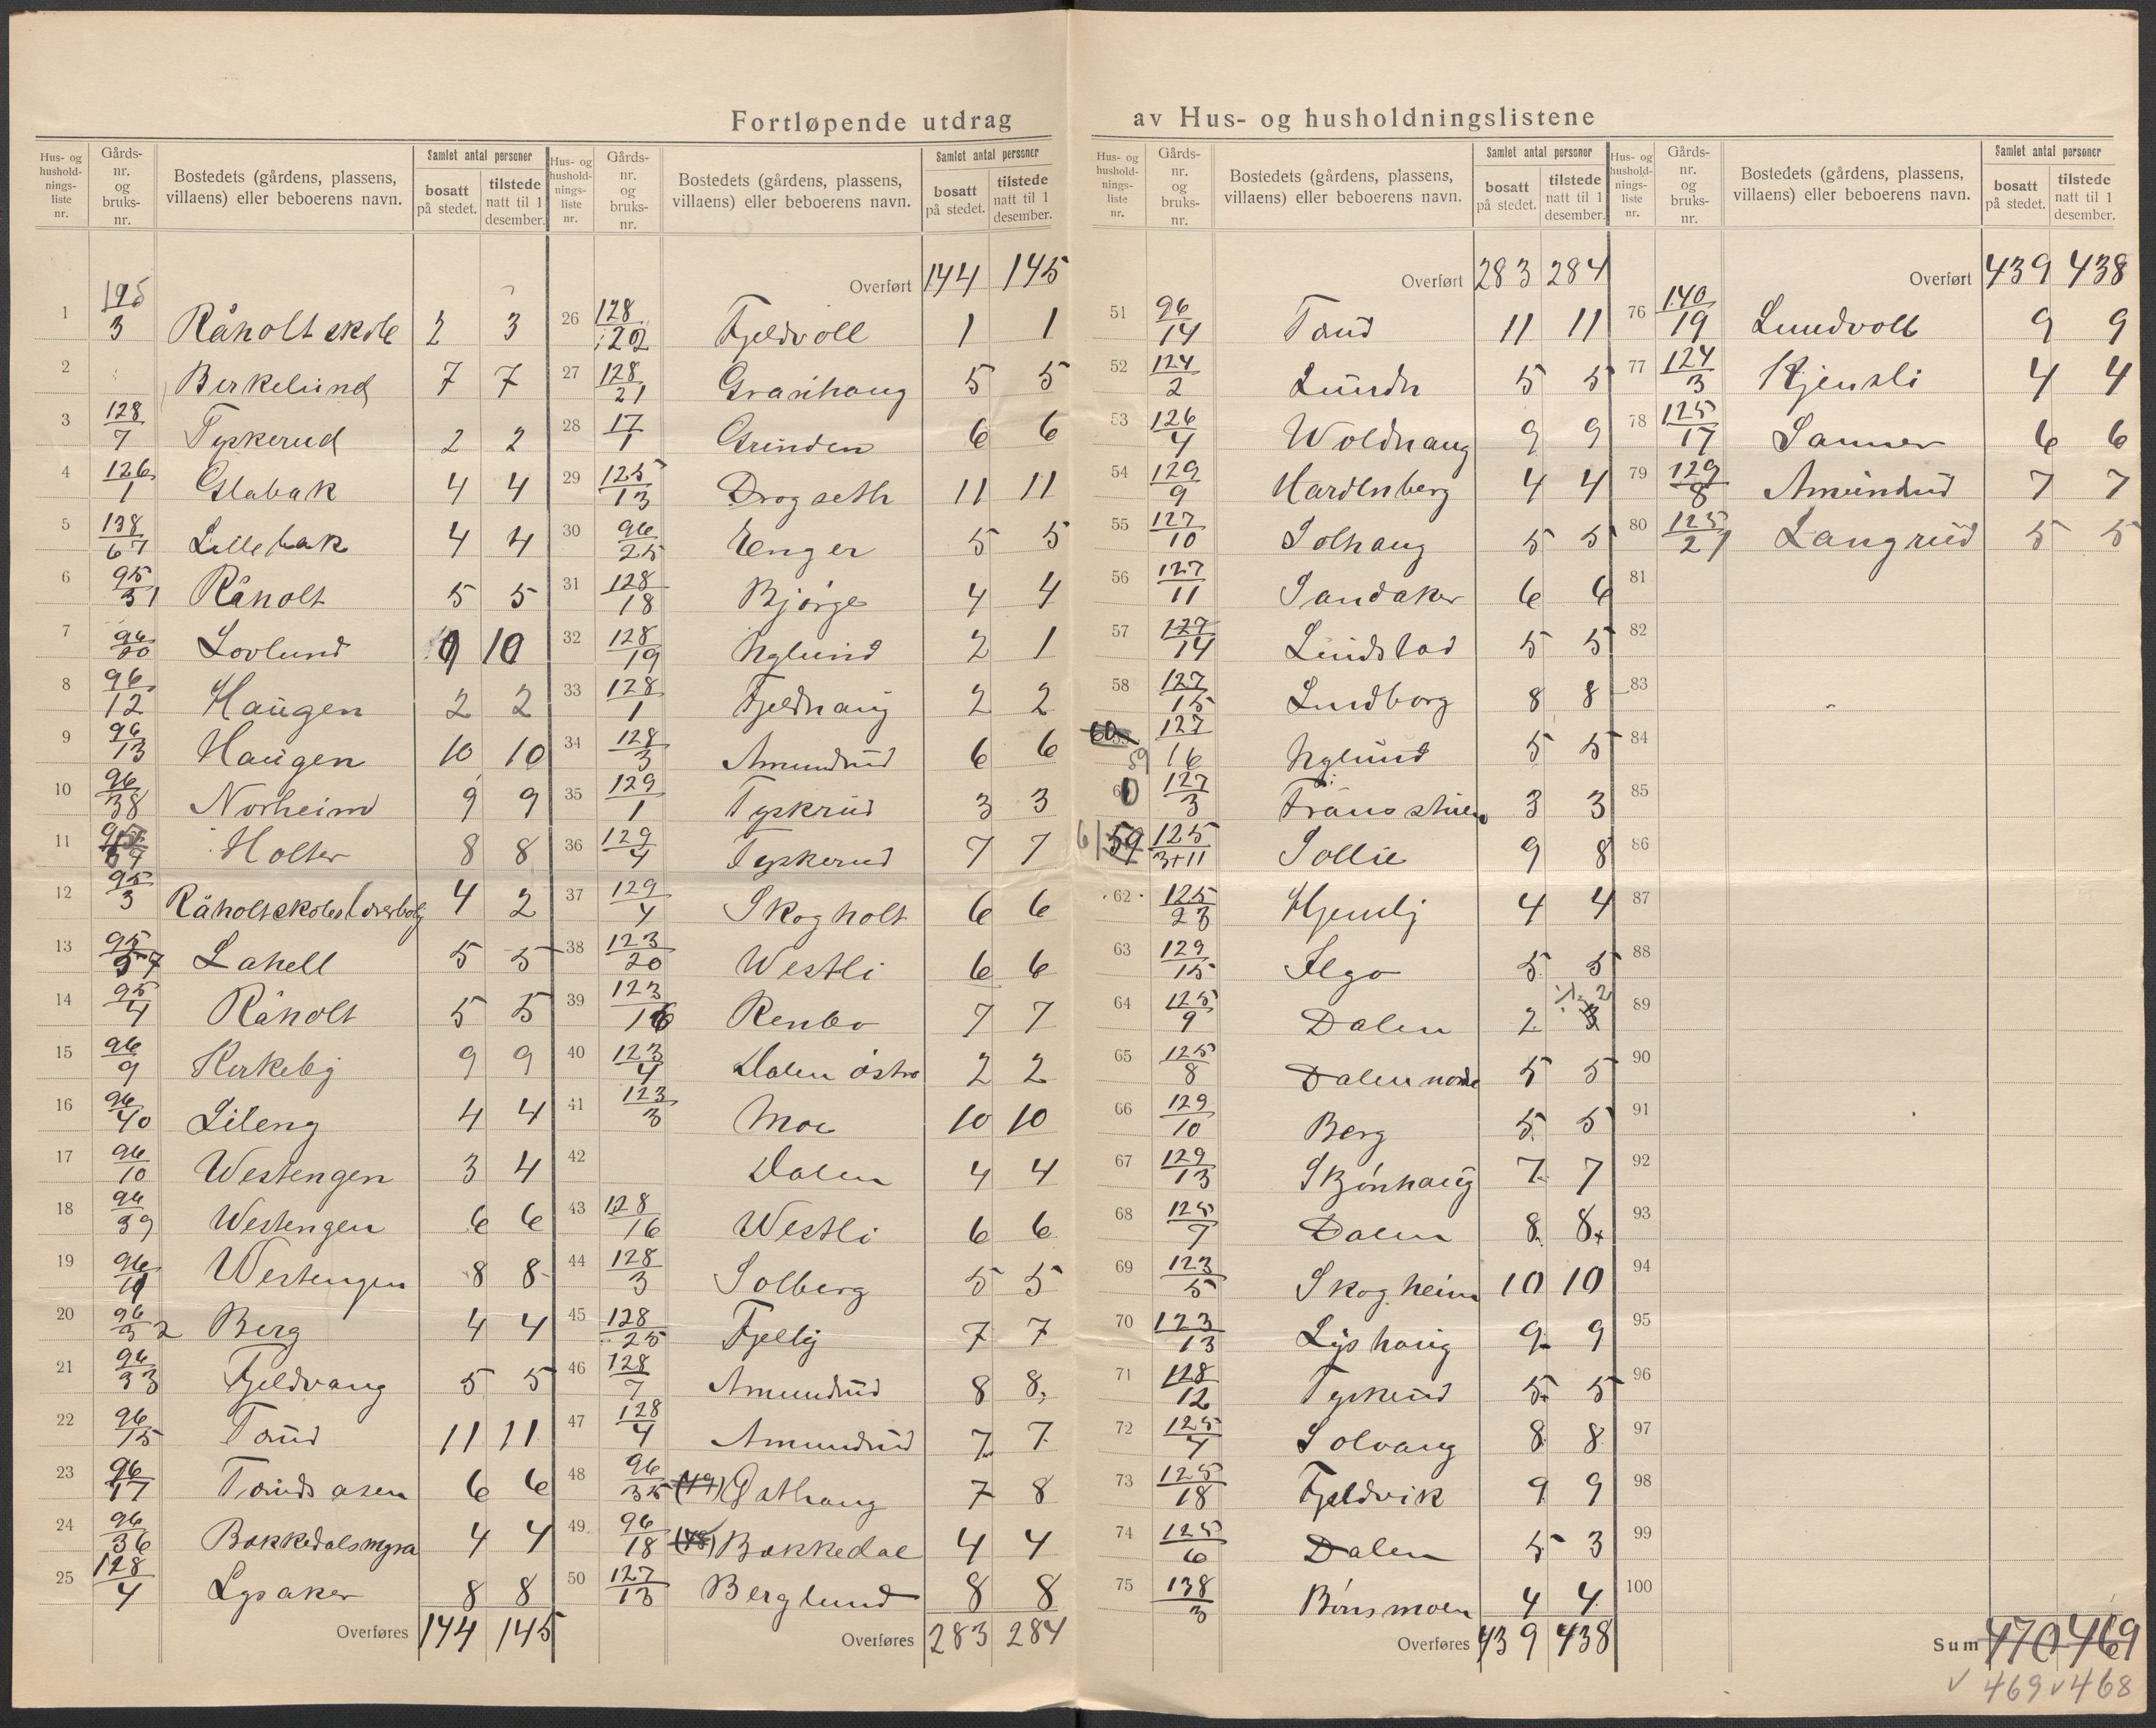 Fortløpende utdrag av Hus- og husholdningslistene
Hus- og hushold-nings-liste nr. | Gårds-nr. og bruks-nr. | Bostedets (gårdens, plassens, villaens) eller beboerens navn. | Samlet antal personer | bosatt på stedet. | tilstede natt til 1 desember.
1 195/3 Råholt skole 2 3
2 Berkelund 7 7
3 128/7 Tyskerud 2 2
4 126/1 Glabak 4 4
5 138/67 Lillebak 4 4
6 95/31 Råholt 5 5
7 96/20 Lovlund 9 10
8 96/12 Haugen 2 2
9 96/13 Haugen 10 10
10 96/38 Norheim 9 9
11 Holter 8 8
12 95/3 Råholt skoles 4 2
13 95/57 Lahell 5 5
14 95/4 Råholt 5 5
15 96/9 Kirkeby 9 9
16 96/40 Lileng 4 4
17 96/10 Westengen 3 4
18 96/39 Westengen 6 6
19 96/11 Westengen 8 8
20 96/32 Berg 4 4
21 96/33 Fjeldvang 5 5
22 96/15 Taud 11 11
23 96/17 Tauds asen 6 6
24 96/36 Bakkedalsmyra 4 4
25 128/4 Lysaker 8 8
Overføres 144 145
Hus- og hushold-nings-liste nr. | Gårds-nr. og bruks-nr. | Bostedets (gårdens, plassens, villaens) eller beboerens navn. | Samlet antal personer | bosatt på stedet. | tilstede natt til 1 desember.
Overført 144 145
26 128/22 Fjeldvoll 1 1
27 128/21 Granhaug 5 5
28 17/1 Grinden 6 6
29 125/13 Drogseth 11 11
30 96/25 Enger 5 5
31 128/18 Bjørge 4 4
32 128/19 Nylund 2 1
33 128/1 Fjeldhaug 2 2
34 128/3 Amundrud 6 6
35 129/1 Tyskrud 3 3
36 129/4 Tyskerud 7 7
37 129/4 Skogholt 6 6
38 123/20 Westli 6 6
39 123/16 Renbo 7 7
40 123/4 Dalen østre 2 2
41 123/3 Moe 10 10
42 Dalen 4 4
43 128/16 Westli 6 6
44 128/3 Solberg 5 5
45 128/25 Fjelby 7 7
46 128/7 Amundrud 8 8
47 128/4 Amundrud 7 7
48 96/35 (49) Østhaug 7 8
49 96/18 (48) Bakkedal 4 4
50 127/13 Berglund 8 8
Overføres 283 284
Hus- og hushold-nings-liste nr. | Gårds-nr. og bruks-nr. | Bostedets (gårdens, plassens, villaens) eller beboerens navn. | Samlet antal personer | bosatt på stedet. | tilstede natt til 1 desember.
Overført 283 284
51 96/14 Taud 11 11
52 124/2 Lundn 5 5
53 126/4 Woldhaug 9 9
54 129/9 Hardenberg 4 4
55 127/10 Solhaug 5 5
56 127/11 Sandaker 6 6
57 127/14 Lindstad 5 5
58 127/15 Lundborg 8 8
59 127/16 Nylund 5 5
60 127/3 3 3
61 59 125/3+11 Sollie 9 8
62 125/23 Hjemly 4 4
63 129/15 5 5
64 125/9 Dalen 2 2
65 125/8 Dalen nordre 5 5
66 129/10 Berg 5 5
67 129/13 Skjønhaug 7 7
68 125/7 Dalen 8 8
69 123/5 Skogheim 10 10
70 123/13 Lyshaug 9 9
71 128/12 Tyskerud 5 5
72 125/4 Solvang 8 8
73 125/18 Fjeldvik 9 9
74 125/6 Dalen 5 3
75 138/3 Bønsmoen 4 4
Overføres 439 438
Hus- og hushold-nings-liste nr. | Gårds-nr. og bruks-nr. | Bostedets (gårdens, plassens, villaens) eller beboerens navn. | Samlet antal personer | bosatt på stedet. | tilstede natt til 1 desember.
Overført 439 438
76 140/19 Lundvoll 9 9
77 124/3 Kjensli 4 4
78 125/17 Sanner 6 6
79 129/8 Amundrud 7 7
80 125/21 Langrud 5 5
81
82
83
84
85
86
87
88
89
90
91
92
93
94
95
96
97
98
99
100
Sum 470 469
✓ 469 ✓ 468